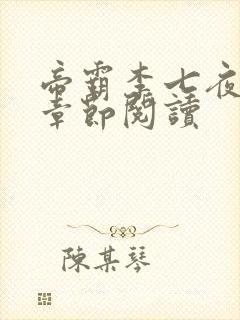 帝霸李七夜
章節閱讀
陳某琴